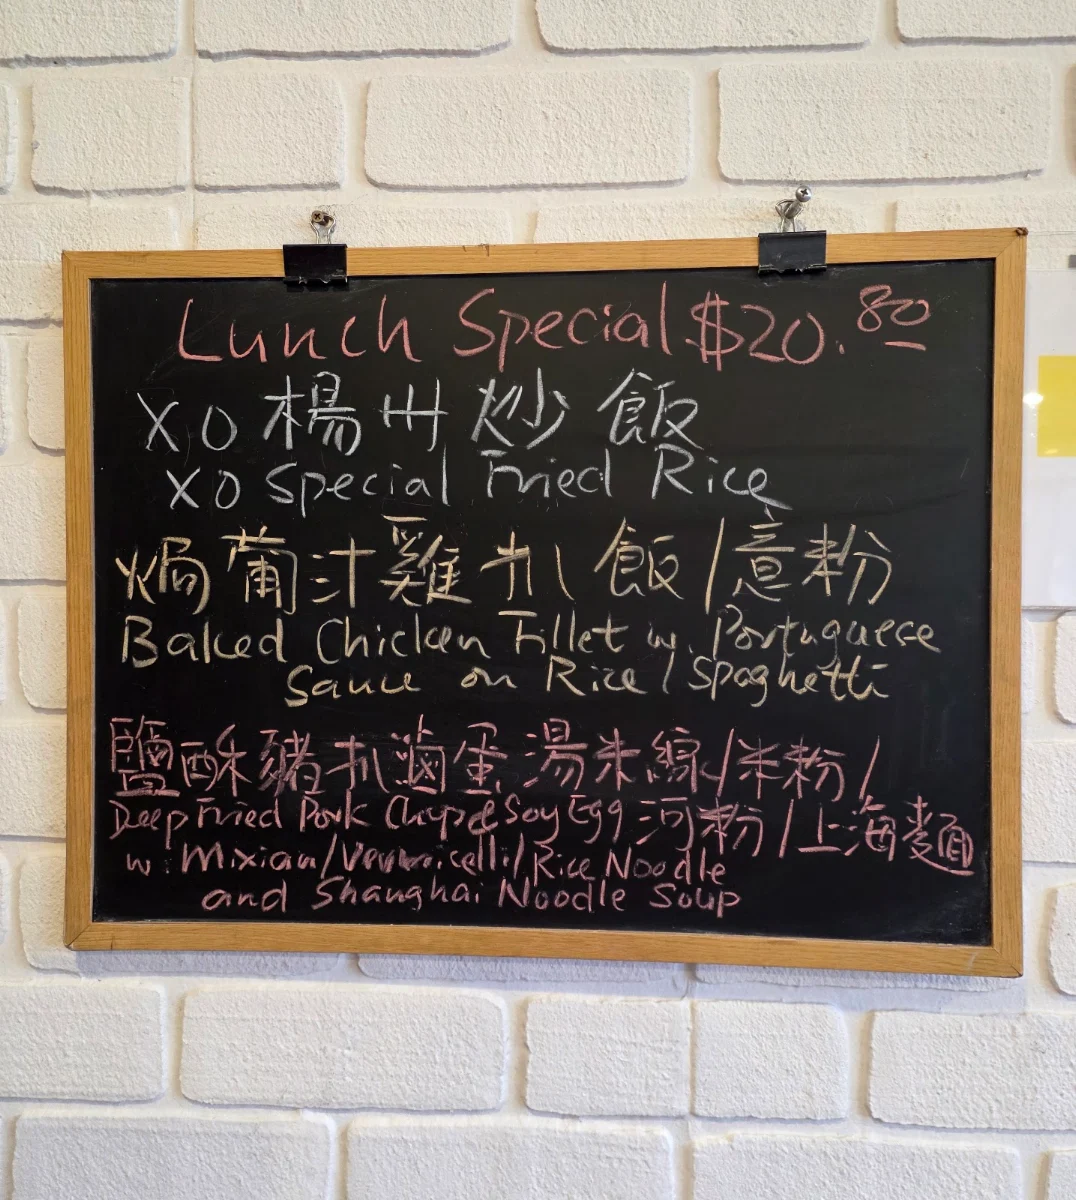 Lunch Special $20.80
XO 楊州炒飯
XO Special Fried Rice
焗葡汁雞扒飯/意粉
Baked Chicken Fillet w. Portuguese
Sauce on Rice / Spaghetti
鹽酥豬扒滷蛋湯米線/米粉/
河粉/上海麵
Deep Fried Pork Chop & Soy Egg
w. Mixian/Vermicelli/Rice Noodle
and Shanghai Noodle Soup